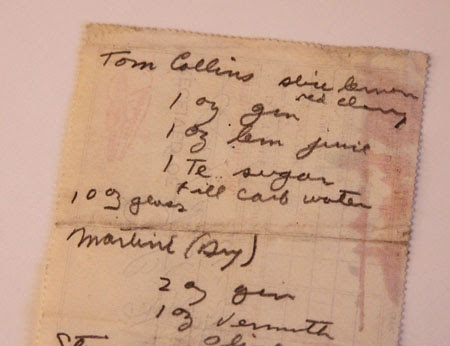 Tom Collins slice lemon
red cherry
1 oz gin
1 oz lem juice
1 Te. sugar
fill carb water
10 oz glass
Martini (Dry)
2 oz gin
1 oz Vermuth